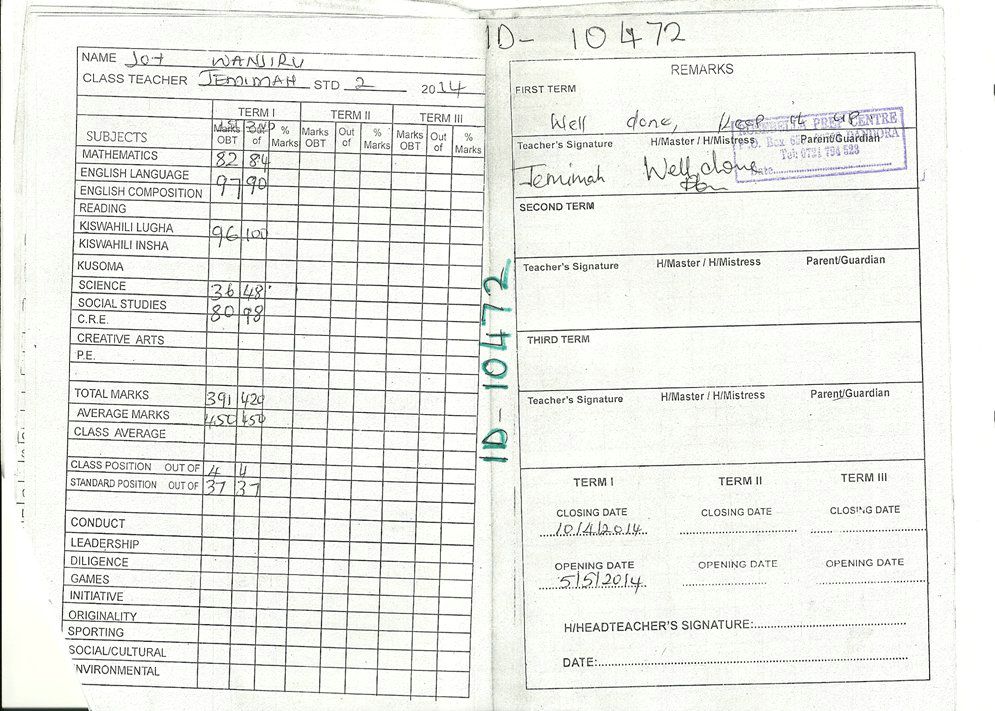 ID- 10472
NAME Joy WANJIRU
CLASS TEACHER JEMIMAH STD 2 2014
TERM I TERM II TERM III
SUBJECTS Marks OBT Out of % Marks Marks OBT Out of % Marks Marks OBT Out of % Marks
1st 3RD
MATHEMATICS 82 84
ENGLISH LANGUAGE
97 90
ENGLISH COMPOSITION
READING
KISWAHILI LUGHA
96 100
KISWAHILI INSHA
KUSOMA
SCIENCE 36 48
SOCIAL STUDIES
80 98
C.R.E.
CREATIVE ARTS
P.E.
TOTAL MARKS 391 420
AVERAGE MARKS 450 450
CLASS AVERAGE
CLASS POSITION OUT OF 4 4
STANDARD POSITION OUT OF 37 37
CONDUCT
LEADERSHIP
DILIGENCE
GAMES
INITIATIVE
ORIGINALITY
SPORTING
SOCIAL/CULTURAL
NVIRONMENTAL
ID-10472
REMARKS
FIRST TERM
Well done, Keep it up
Teacher's Signature H/Master / H/Mistress Parent/Guardian
Jemimah Well done
CENTRE
P.O. Box DANDORA
Tel: 0731 754 523
Date
SECOND TERM
Teacher's Signature H/Master / H/Mistress Parent/Guardian
THIRD TERM
Teacher's Signature H/Master / H/Mistress Parent/Guardian
TERM I TERM II TERM III
CLOSING DATE CLOSING DATE CLOSING DATE
10/4/2014
OPENING DATE OPENING DATE OPENING DATE
5/5/2014
H/HEADTEACHER'S SIGNATURE:
DATE: